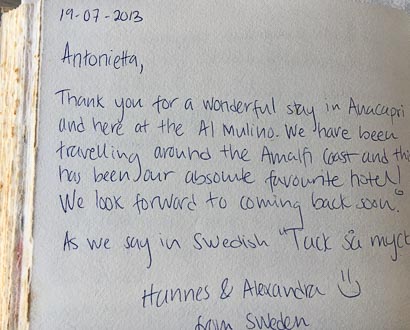 19-07-2013
Antonietta,
Thank you for a wonderful stay in Anacapri
and here at the Al Mulino. We have been
travelling around the Amalfi coast and this
has been our absolute favourite hotel!
We look forward to coming back soon.
As we say in Swedish "Tack så myck
Hannes & Alexandra
from Sweden